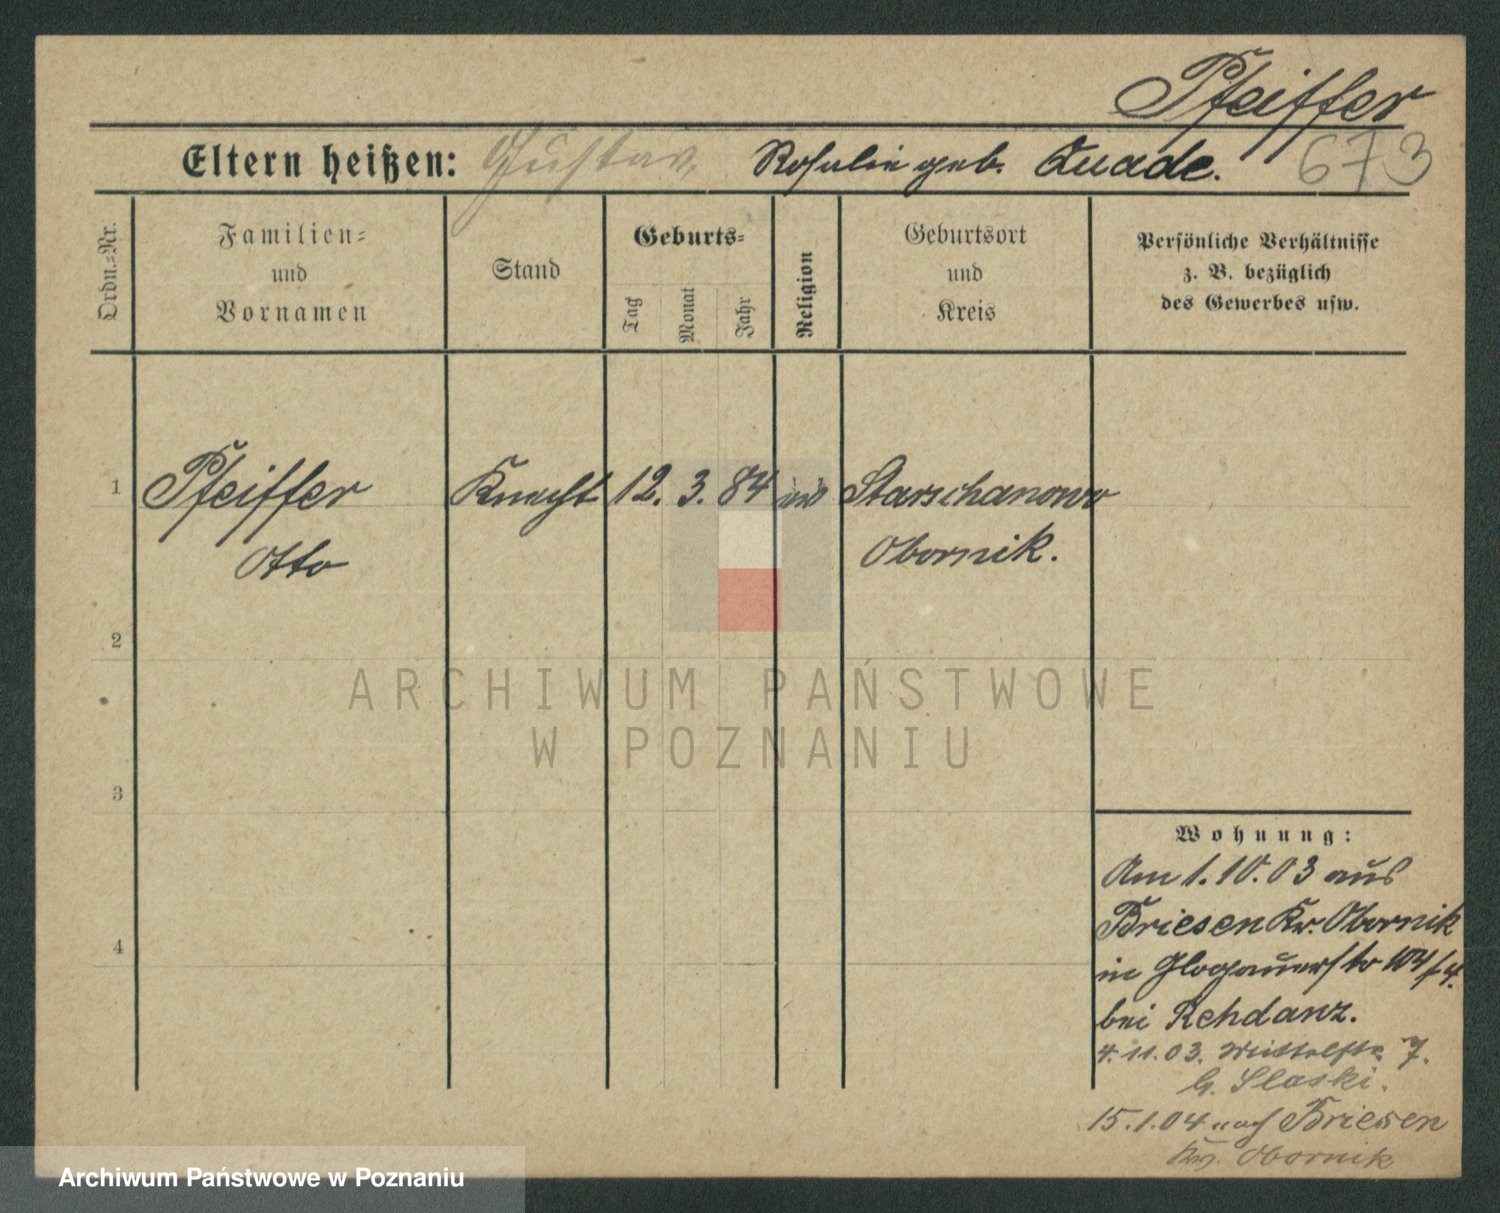 Pfeiffer
673
Eltern heißen: Gustav, Rosalie geb. Quade.
Ordn.-Nr.
Familien-
und
Vornamen
Stand
Geburts-
Tag
Monat
Jahr
Religion
Geburtsort
und
Kreis
Persönliche Verhältnisse
z. B. bezüglich
des Gewerbes usw.
1 Pfeiffer Knecht 12. 3. 84 ev Starschanowo
Otto Obornik.
2
3
4
ARCHIWUM PAŃSTWOWE
W POZNANIU
Wohnung:
Am 1.10.03 aus
Briesen Kr. Obornik
in Glogauerstr 104/
bei Rehdanz.
4.11.03. 7.
b. Slaski.
15.1.04 nach Briesen
Kr. Obornik
Archiwum Państwowe w Poznaniu